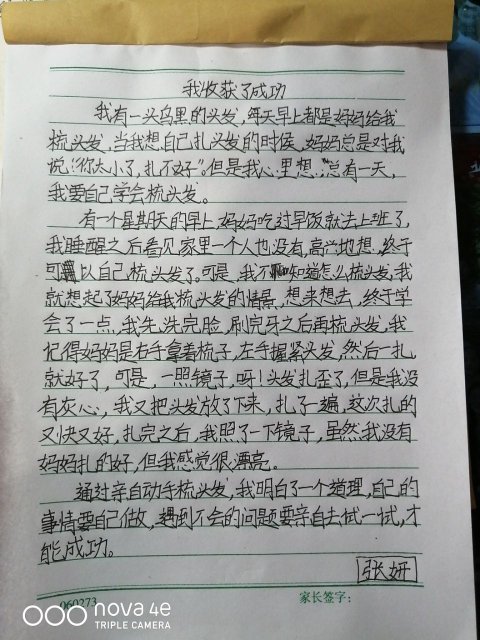 我收获了成功
我有一头乌黑的头发,每天早上都是妈妈给我
梳头发,当我想自己扎头发的时候,妈妈总是对我
说:“你太小了,扎不好”。但是我心里想:“总有一天,
我要自己学会梳头发。
有一个星期天的早上,妈妈吃过早饭就去上班了,
我睡醒之后看见家里一个人也没有,高兴地想,终于
可以自己梳头发了。可是,我不知道怎么梳头发,我
就想起了妈妈给我梳头发的情景,想来想去,终于学
会了一点,我先洗完脸,刷完牙之后再梳头发,我
记得妈妈是右手拿着梳子,左手握紧头发,然后一扎
就好了,可是,一照镜子,呀!头发扎歪了,但是我没
有灰心,我又把头发放了下来,扎了一遍,这次扎的
又快又好,扎完之后,我照了一下镜子,虽然我没有
妈妈扎的好,但我感觉很漂亮。
通过亲自动手梳头发,我明白了一个道理,自己的
事情要自己做,遇到不会的问题要亲自去试一试,才
能成功。
张妍
060273 家长签字:
nova 4e
TRIPLE CAMERA